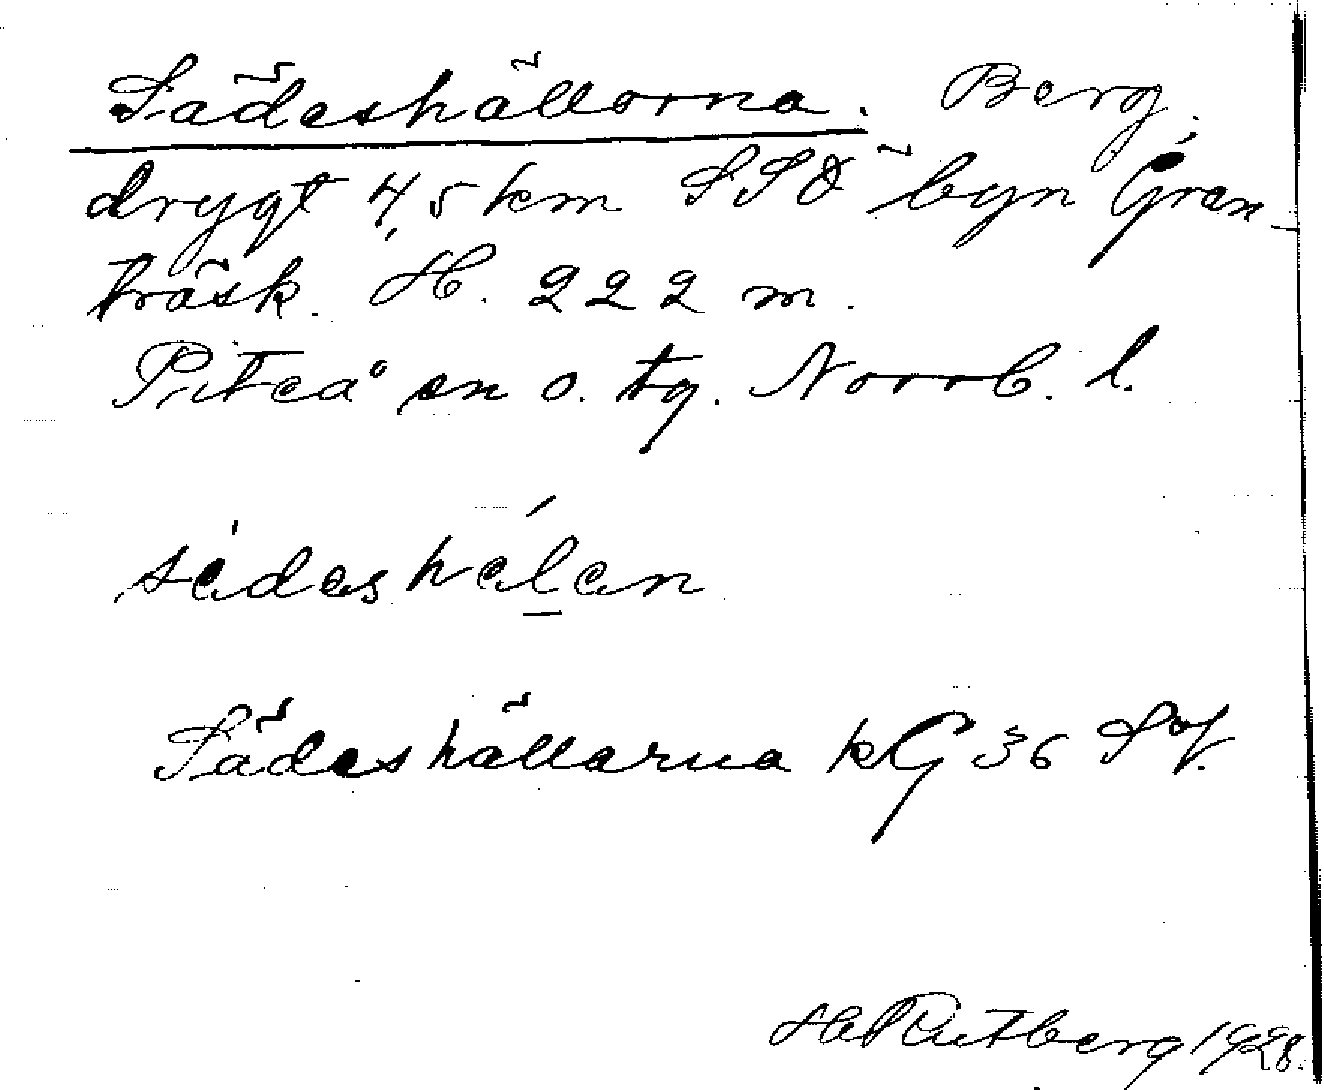 Sädeshällorna. Berg,
drygt 4,5 km SSÖ byn Gran-
träsk. H. 222 m.
Piteå sn o. tg. Norrb. l.
sédeshélen
Sädeshällarna kG 36 Sf.
H. Rutberg 1928.